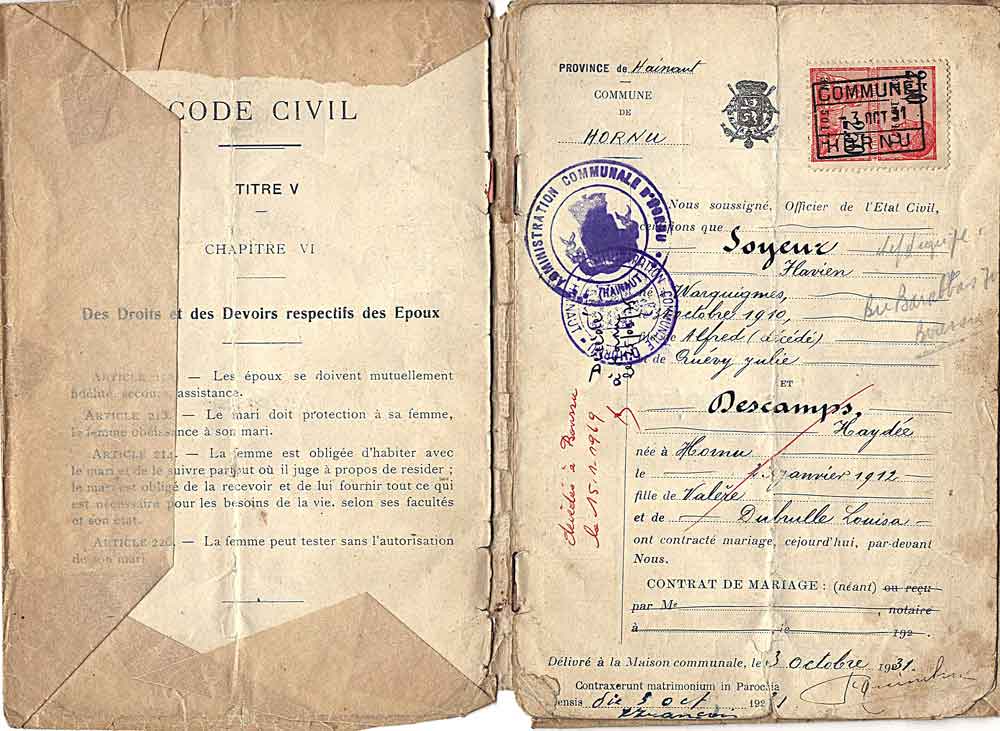 CODE CIVIL
TITRE V
CHAPITRE VI
Des Droits et des Devoirs respectifs des Epoux
ARTICLE 212. — Les époux se doivent mutuellement
fidélité, secours, assistance.
ARTICLE 213. — Le mari doit protection à sa femme,
la femme obéissance à son mari.
ARTICLE 214. — La femme est obligée d'habiter avec
le mari et de le suivre partout où il juge à propos de resider ;
le mari est obligé de la recevoir et de lui fournir tout ce qui
est nécessaire pour les besoins de la vie, selon ses facultés
et son état.
ARTICLE 226. — La femme peut tester sans l'autorisation
de son mari
PROVINCE de Hainaut
COMMUNE
DE
HORNU
COMMUNE
3 OCT 31
HORNU
ADMINISTRATION COMMUNALE D'HORNU
(HAINAUT)
Nous soussigné, Officier de l'Etat Civil,
certifions que
Soyeur
Flavien
né à Warquignies,
octobre 1910,
de Alfred (décédé)
et de Quévy Julie
ET
Descamps,
Haydée
née à Hornu
le janvier 1912
fille de Valère
et de Dubrulle Louisa
ont contracté mariage, cejourd'hui, par-devant
Nous.
CONTRAT DE MARIAGE : (néant) ou reçu
par Me , notaire
à le 192 .
Délivré à la Maison communale, le 3 octobre 1931.
Contraxerunt matrimonium in Parochia
ensis die 3 oct 1931
décédée à Boussu
le 15.1.1969